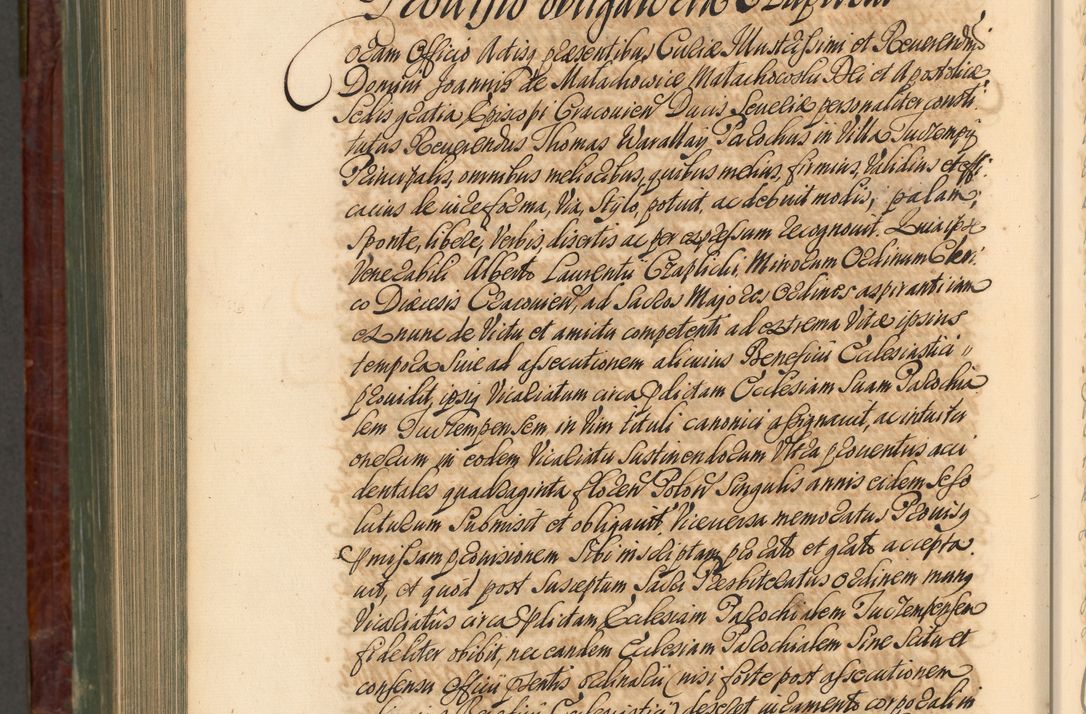 Provisio obligatoria Czaplicki
Coram Officio Actisq præsentibus Curiæ Illustrissimi et Reverendmi
Domini Joannis de Małachowice Małachowski Dei et Apostolicæ
Sedis gratia Episcopi Cracovien Ducis Severiæ personaliter consti
tutus Reverendus Thomas Parochus in Villa
Principalis, omnibus melioribus, quibus melius, firmius, validius et effi
cacius de iure forma, via, stylo, potuit, ac debuit modis, palam,
sponte, libere, verbis, disertis ac per expressum recognovit. Quia ipse
Venerabili Alberto Laurentii Czaplicki, Minorum Ordinum Cleri
co Diæcesis Cracovien, ad Sacros Majores Ordines aspiranti iam
ex nunc de Victu et amictu competenti ad extrema Vitæ ipsius
tempora sive ad assecutionem alicuius Beneficii Ecclesiastici
providit, ipsiq Vicariatum circa pdictam Ecclesiam Suam Parochia
lem in Vim tituli canonici assignavit, ac intuitu
onerum in eodem Vicariatu Sustinendorum Ultra proventus acci
dentales quadraginta floren Polon Singulis annis eidem se so
luturum Submisit et obligavit Viceversa memoratus Provisq
pmissam provisionem Sibi inscriptam pro rato et grato accepta
vit, et quod post Susceptum Sacri Presbiteratus Ordinem munq
Vicariatûs circa pdictam Ecclesiam Parochialem
fideliter obibit, nec eandem Ecclesiam Parochialem Sine Scitu et
consensu Officii psentis ordinarii (nisi forte post assecutionem
alicuius Beneficii Ecclesiastici) deseret iuramento corporali in